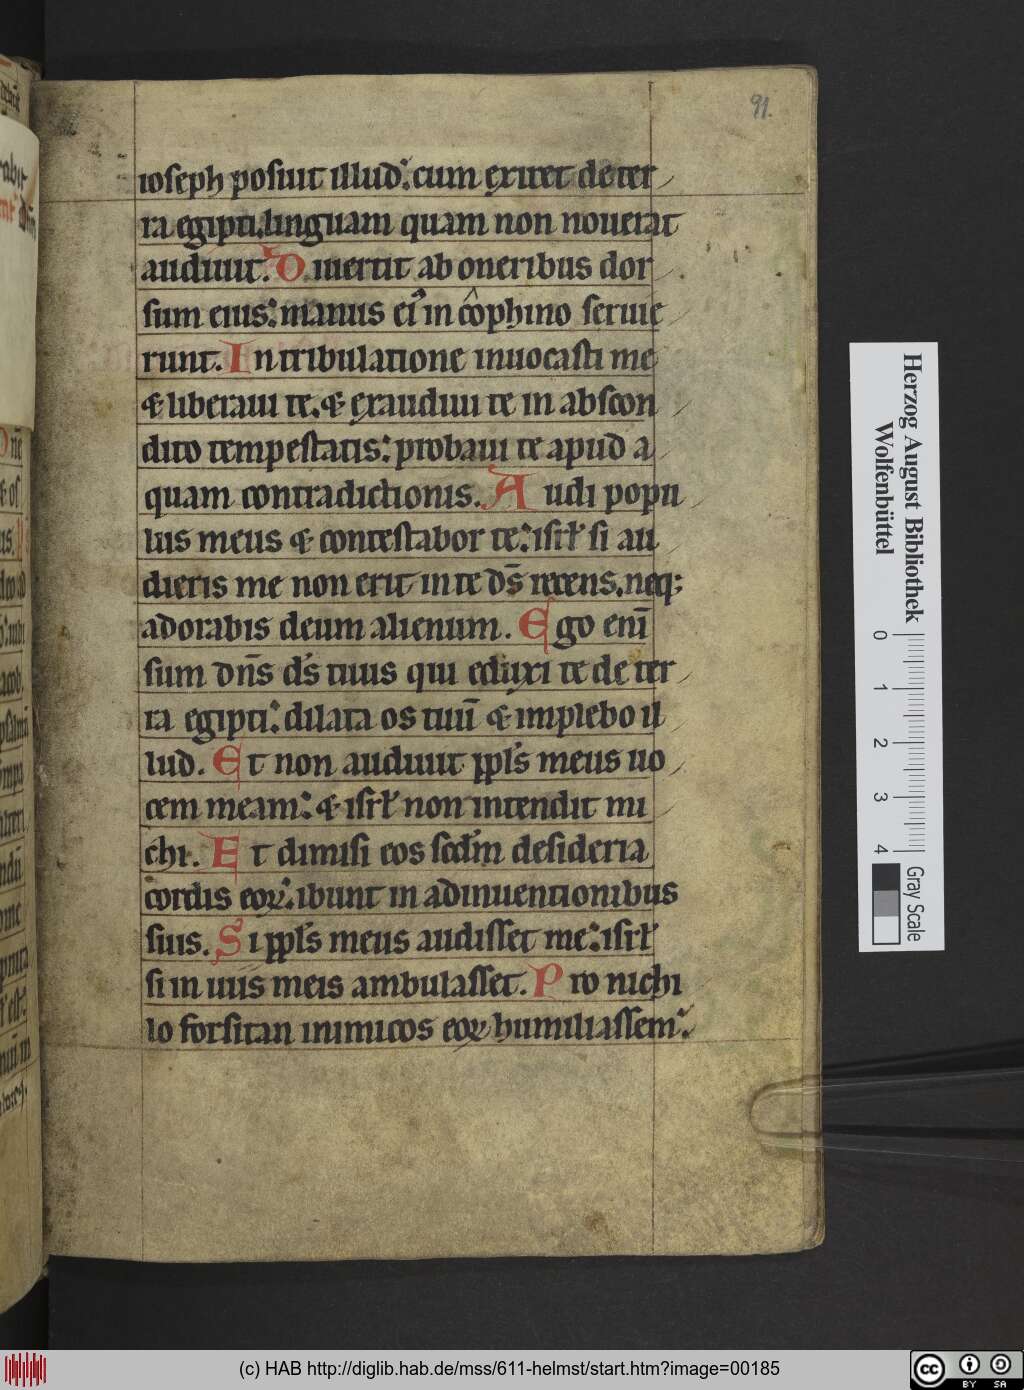 91.
ioseph posuit illud: cum exiret de ter
ra egipti. linguam quam non nouerat
audiuit. Diuertit ab oneribus dor
sum eius: manus ei᷒ in cophino seruie
runt. In tribulatione inuocasti me
& liberaui te. & exaudiui te in abscon
dito tempestatis: probaui te apud a
quam contradictionis. Audi popu
lus meus & contestabor te: isrl̄ si au
dieris me non erit in te ds̄ recens. neq;
adorabis deum alienum. Ego eni̅
sum dn̄s ds̄ tuus qui eduxi te de ter
ra egipti: dilata os tuu̅ & implebo il
lud. Et non audiuit ppl̄s meus uo
cem meam: & isrl̄ non intendit mi
chi. Et dimisi eos scd̄m desideria
cordis eoꝝ: ibunt in adinuentionibus
suis. Si ppl̄s meus audisset me: isrl̄
si in uiis meis ambulasset. Pro nichi
lo forsitan inimicos eoꝝ humiliassem:
Herzog August Bibliothek
Wolfenbüttel
0 1 2 3 4
Gray Scale
(c) HAB http://diglib.hab.de/mss/611-helmst/start.htm?image=00185
cc BY SA